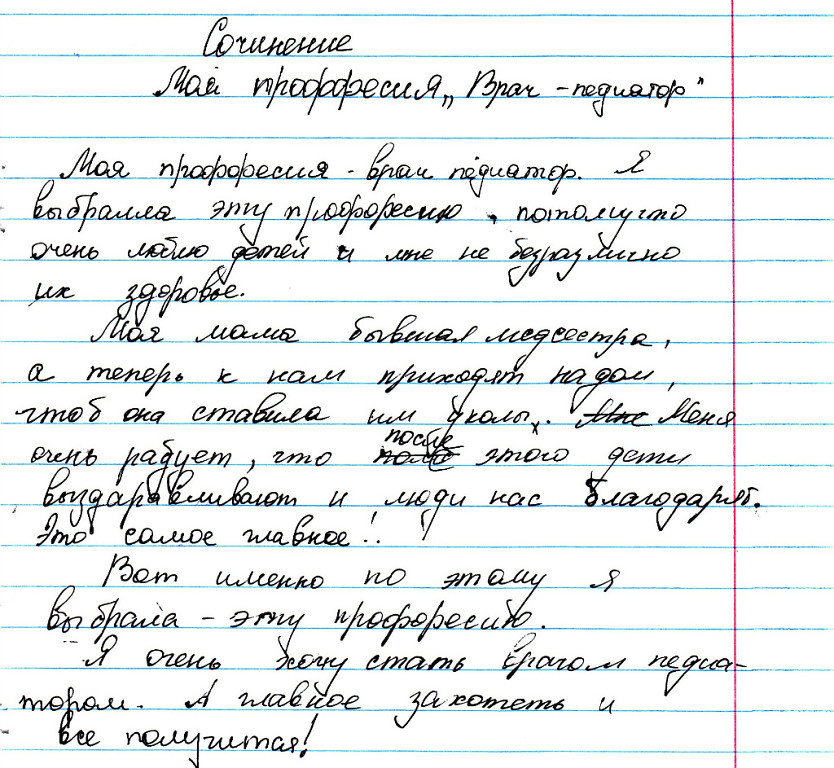 Сочинение
Моя проффесия „Врач - педиатор"
Моя проффесия - врач педиатор. Я
выбралла эту проффесию, потомучто
очень люблю детей и мне не безразлично
их здоровье.
Моя мама бывшая медсестра,
а теперь к нам приходят на дом,
чтоб она ставила им уколы. Мне Меня
очень радует, что после этого дети
выздаравливают и люди нас благодарят.
Это самое главное!
Вот именно по этому я
выбрала - эту проффесию.
Я очень хочу стать врачом педиа-
тором. А главное захотеть и
все получится!